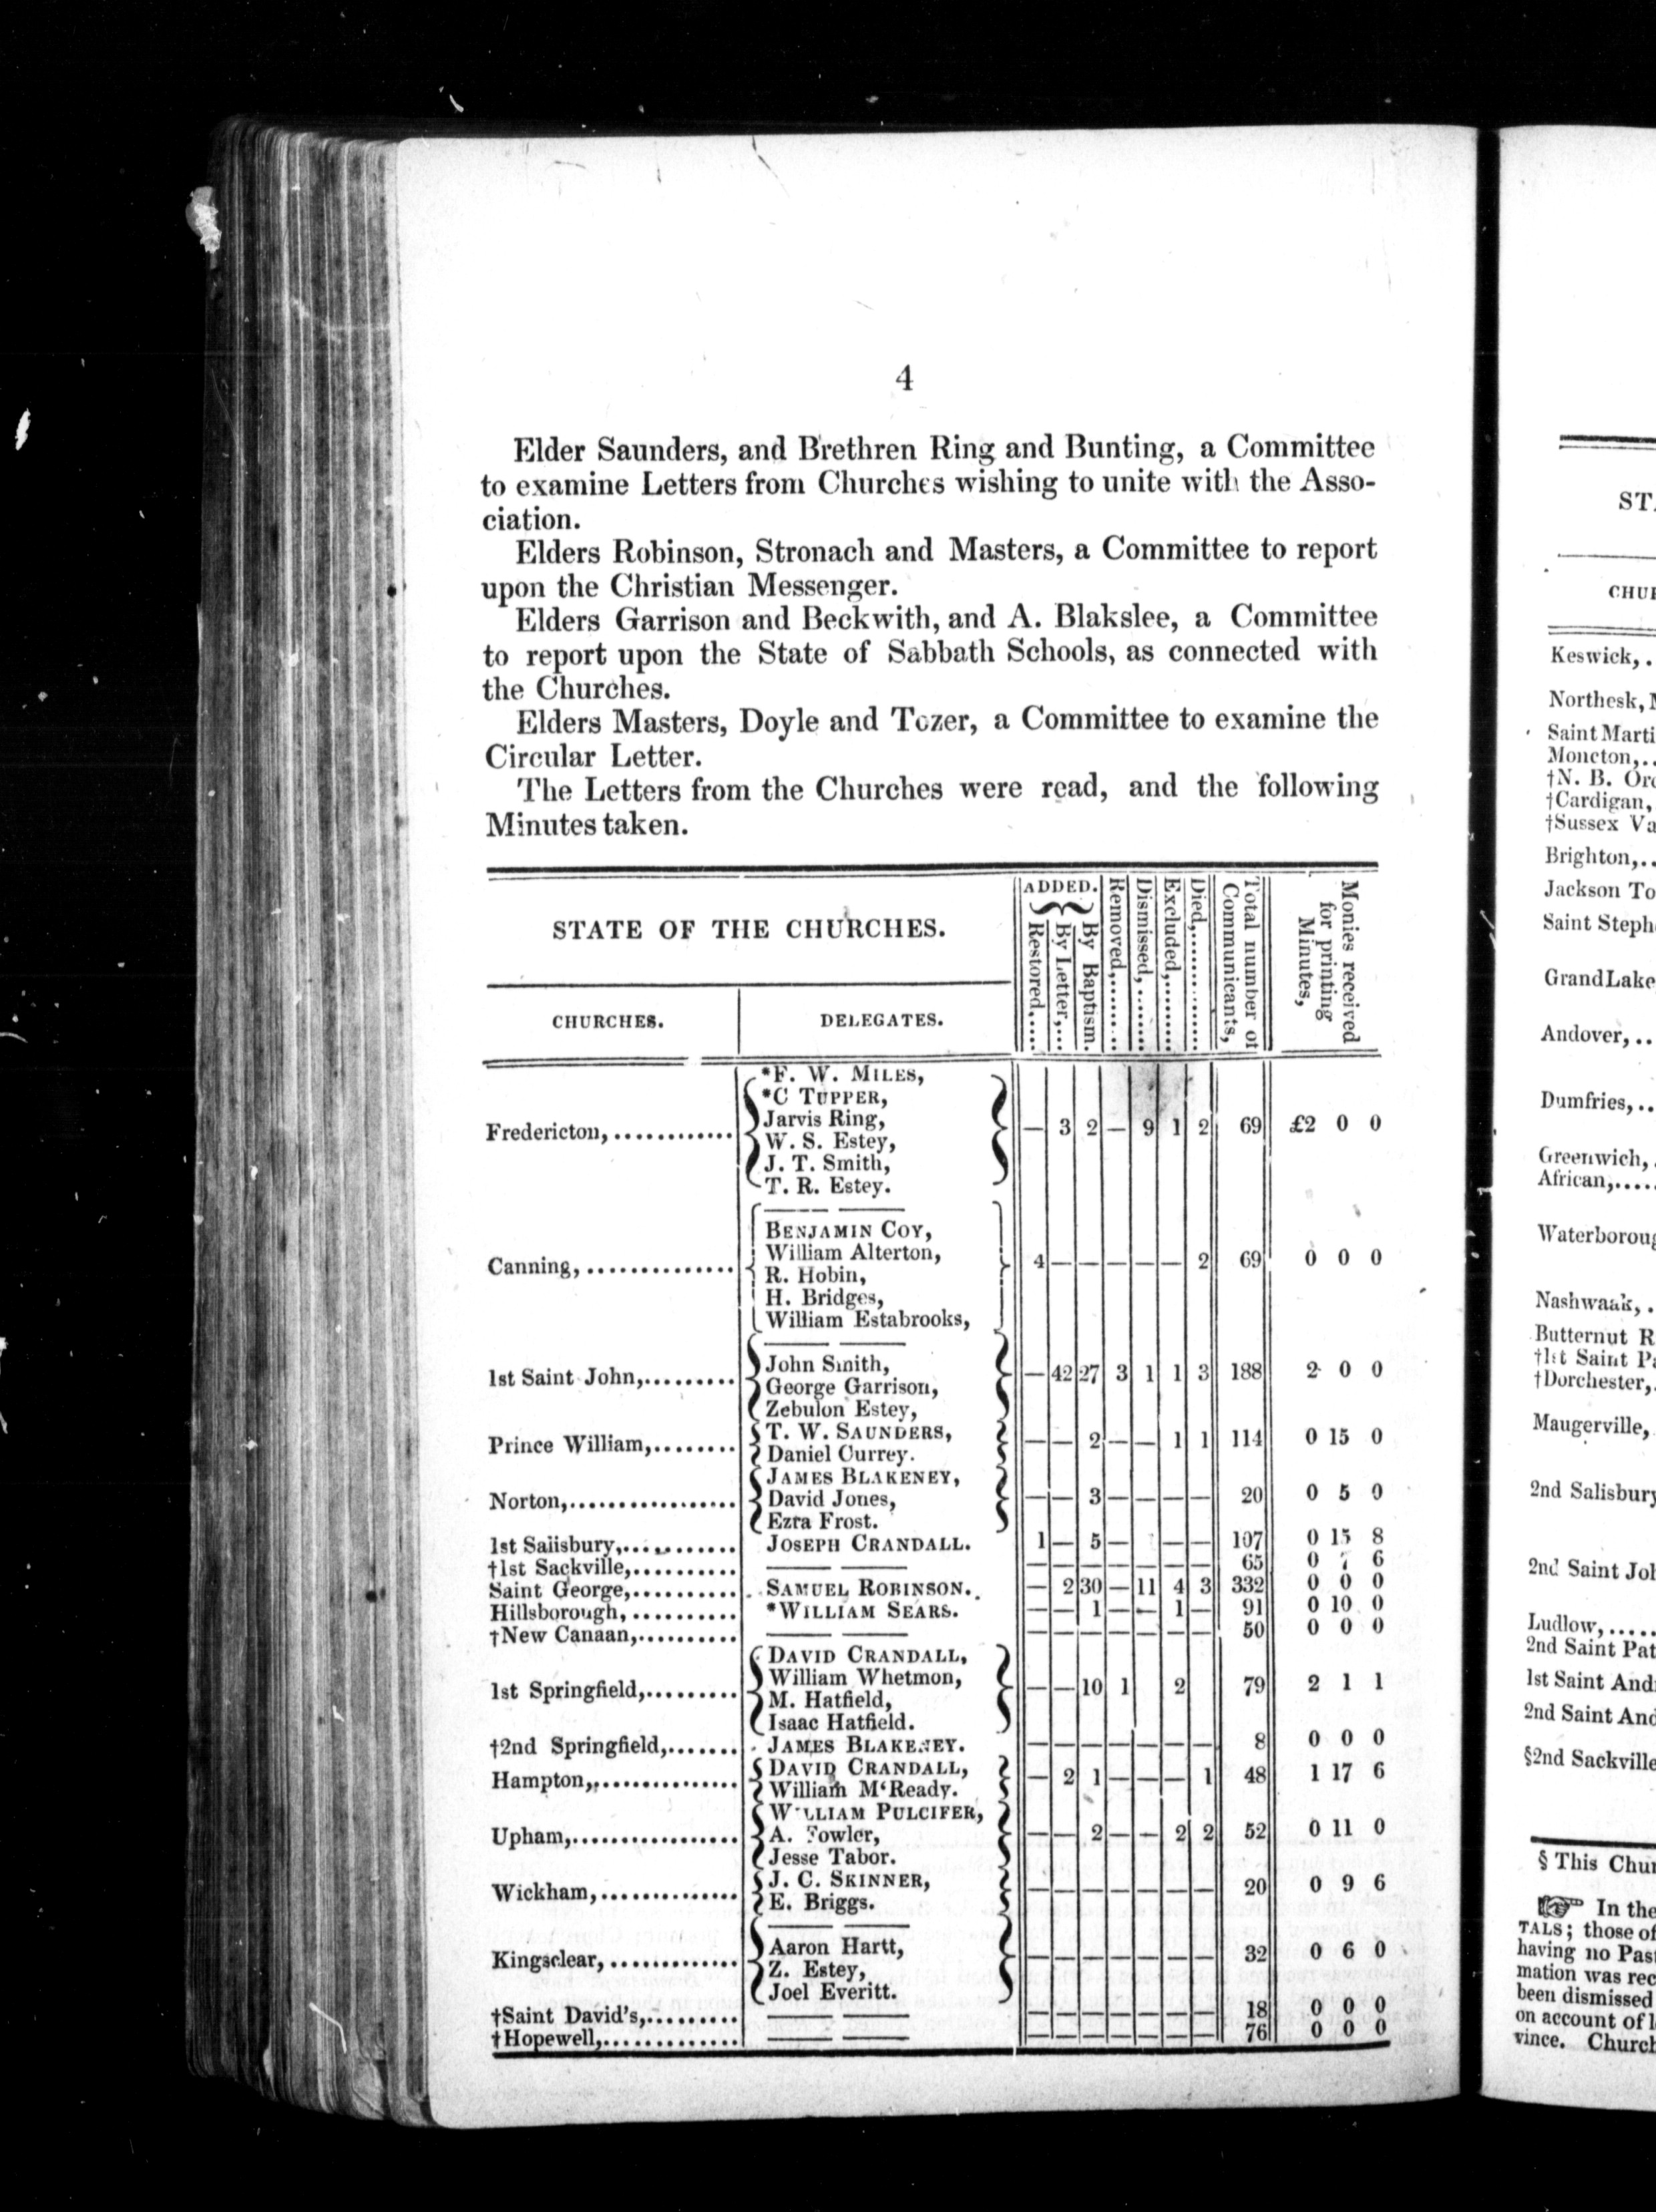 4
Elder Saunders, and Brethren Ring and Bunting, a Committee
to examine Letters from Churches wishing to unite with the Asso-
ciation.
Elders Robinson, Stronach and Masters, a Committee to report
upon the Christian Messenger.
Elders Garrison and Beckwith, and A. Blakslee, a Committee
to report upon the State of Sabbath Schools, as connected with
the Churches.
Elders Masters, Doyle and Tozer, a Committee to examine the
Circular Letter.
The Letters from the Churches were read, and the following
Minutes taken.
STATE OF THE CHURCHES.
CHURCHES.
DELEGATES.
ADDED.
Restored,....
By Letter,...
By Baptism.
Removed,........
Dismissed,........
Excluded,.........
Died,.............
Total number of
Communicants,
Monies received
for printing
Minutes,
*F. W. MILES,
*C TUPPER,
Jarvis Ring,
Fredericton,............ W. S. Estey, — 3 2 — 9 1 2 69 £2 0 0
J. T. Smith,
T. R. Estey.
—— ——
BENJAMIN COY,
William Alterton,
Canning,.............. R. Hobin, 4 — — — — — 2 69 0 0 0
H. Bridges,
William Estabrooks,
—— ——
John Smith,
1st Saint John,......... George Garrison, — 42 27 3 1 1 3 188 2 0 0
Zebulon Estey,
T. W. SAUNDERS,
Prince William,........ Daniel Currey. — — 2 — — 1 1 114 0 15 0
JAMES BLAKENEY,
Norton,................. David Jones, — — 3 — — — — 20 0 5 0
Ezra Frost.
1st Salisbury,............ JOSEPH CRANDALL. 1 — 5 — — — 107 0 15 8
†1st Sackville,........... —— —— — — — — — — — 65 0 7 6
Saint George,........... SAMUEL ROBINSON. — 2 30 — 11 4 3 332 0 0 0
Hillsborough,........... *WILLIAM SEARS. — — 1 — — 1 — 91 0 10 0
†New Canaan,.......... —— —— — — — — — — — 50 0 0 0
DAVID CRANDALL,
William Whetmon,
1st Springfield,......... M. Hatfield, — — 10 1 2 79 2 1 1
Isaac Hatfield.
†2nd Springfield,....... JAMES BLAKENEY. — — — — — — — 8 0 0 0
DAVID CRANDALL,
Hampton,............... William M'Ready. — 2 1 — — — 1 48 1 17 6
WILLIAM PULCIFER,
Upham,................. A. Fowler, — — 2 — — 2 2 52 0 11 0
Jesse Tabor.
J. C. SKINNER,
Wickham,.............. E. Briggs. — — — — — — — 20 0 9 6
—— ——
Aaron Hartt,
Kingsclear,............. Z. Estey, — — — — — — — 32 0 6 0
Joel Everitt.
†Saint David's,.......... —— —— — — — — — — — 18 0 0 0
†Hopewell,............. —— —— — — — — — — — 76 0 0 0
ST
CHU
Keswick,.
Northesk,
Saint Marti
Moncton,..
†N. B. Or
†Cardigan,
†Sussex Va
Brighton,..
Jackson To
Saint Steph
Grand Lake
Andover,..
Dumfries,..
Greenwich,.
African,....
Waterboroug
Nashwaak,.
Butternut R
†1st Saint Pa
†Dorchester,.
Maugerville,
2nd Salisbury
2nd Saint Joh
Ludlow,.....
2nd Saint Pat
1st Saint And
2nd Saint And
§2nd Sackville
§ This Chur
☞ In the
TALS; those of
having no Past
mation was rec
been dismissed
on account of l
vince. Church